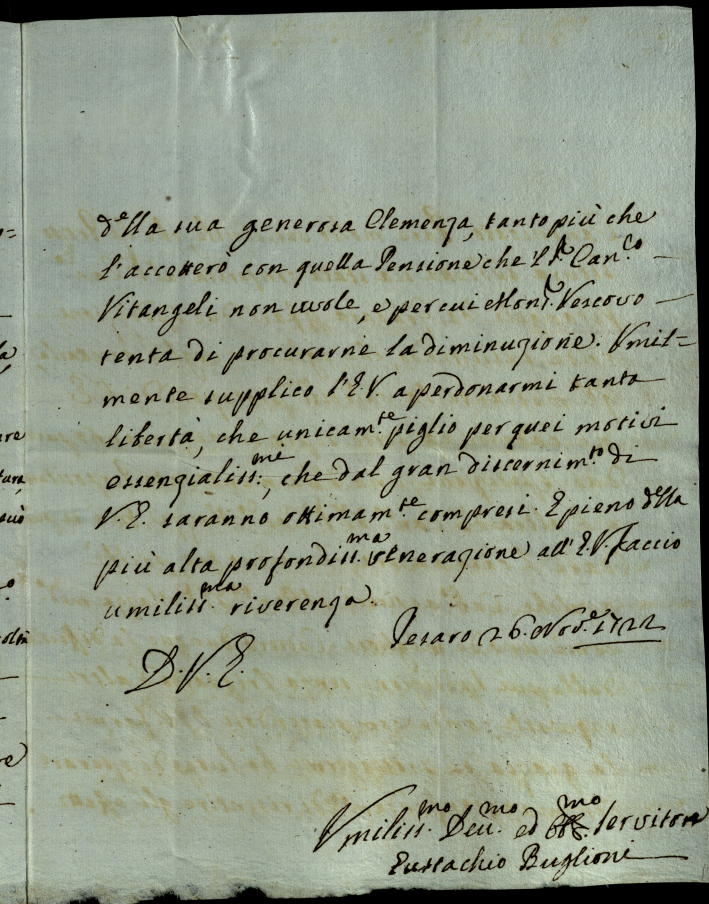 della sua generosa Clemenza, tanto più che
l'accetterò con quella Pensione che il S.r Can.co
Vitangeli non vuole, e per cui Mons.r Vescovo
tenta di procurarne la diminuzione. Vmil=
mente supplico l'E.V. a perdonarmi tanta
libertà, che unicam.te piglio per quei motivi
essenzialiss.me, che dal gran discernim.to di
V.E. saranno ottimam.te compresi. E pieno della
più alta profondiss.ma venerazione all'E.V. faccio
umiliss.ma riverenza.
Pesaro 26. Nov.e 1722
D.V.E.
Vmiliss.mo Deu.mo ed Obb.mo Servitore
Eustachio Buglioni